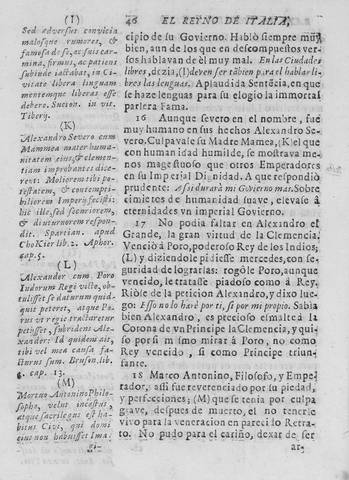 46 EL REYNO DE ITALIA,
(I)
Sed adversus convicia
malosque rumores, &
famosa de se, ac suis car-
mina, firmus, ac patiens
subinde iactabat, in Ci-
vitate libera linguam
mentemque liberas esse
debere. Sueton. in vit.
Tiberij.
(K)
Alexandro Severo cum
Mammea mater humani-
tatem eius, & clemen-
tiam improbantes dice-
rent: Moliorem tibi po-
testatem, & contempti-
biliorem Imperij fecisti:
hic ille, sed securiorem,
& diuturniorem respon-
dit. Spartian. apud
Cho Kier lib. 2. Aphor.
cap. 5.
(L)
Alexander cum Poro
Indorum Regi victo, ob-
tulisset se daturum quid-
quit peteret, atque Po-
rus ut Regie tractaretur
petisset, subridens Ale-
xander: Id quidem, ait,
tibi vel mea causa fa-
cturus sum. Bruson. lib.
6. cap. 13.
(M)
Mortuo Antonino Philo-
sopho, velut incestus,
atque sacrilegus est ha-
bitus Civi, qui domi
eius non habuisset Ima-
gi-
cipio de su Govierno. Hablò siempre muy
bien, aun de los que en descompuestos ver-
sos hablavan de èl muy mal. En las Ciudades
libres, dezia, (I) deven ser tãbien para el hablar li-
bres las lenguas. Aplaudida Sentẽcia, en que
se haze lenguas para su elogio la immortal
parlera Fama.
16 Aunque severo en el nombre, fue
muy humano en sus hechos Alexandro Se-
vero. Culpavale su Madre Mamea, (K) el que
con humanidad humilde, se mostrava me-
nos magestuoso que otros Emperadores
en su Imperial Dignidad. A que respondiò
prudente: Assi durarà mi Govierno mas. Sobre
cimientos de humanidad suave, elevasò à
eternidades vn imperial Govierno.
17 No podia faltar en Alexandro el
Grande, la gran virtud de la Clemencia.
Venciò à Poro, poderoso Rey de los Indios;
(L) y diziendole pidiesse mercedes, con se-
guridad de lograrlas: rogòle Poro, aunque
vencido, le tratasse piadoso como à Rey.
Riòse de la peticion Alexandro, y dixo lue-
go: Esso no lo harè por ti, si por mi proprio. Sabia
bien Alexandro, es precioso esmalte à la
Corona de vn Principe la Clemencia, y qui-
so por sì mismo mirar à Poro, no como
Rey vencido, si como Principe triun-
fante.
18 Marco Antonino, Filosofo, y Empe-
rador, assi fue reverenciado por su piedad,
y perfecciones; (M) que se tenia por culpa
grave, despues de muerto, el no tenerle
vivo para la veneracion en pareci lo Retra-
to. No pudo para el cariño, dexar de ser
ar-